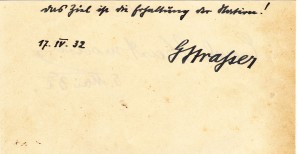 das Ziel ist die Erhaltung der Nation!
17. IV. 32
GStrasser